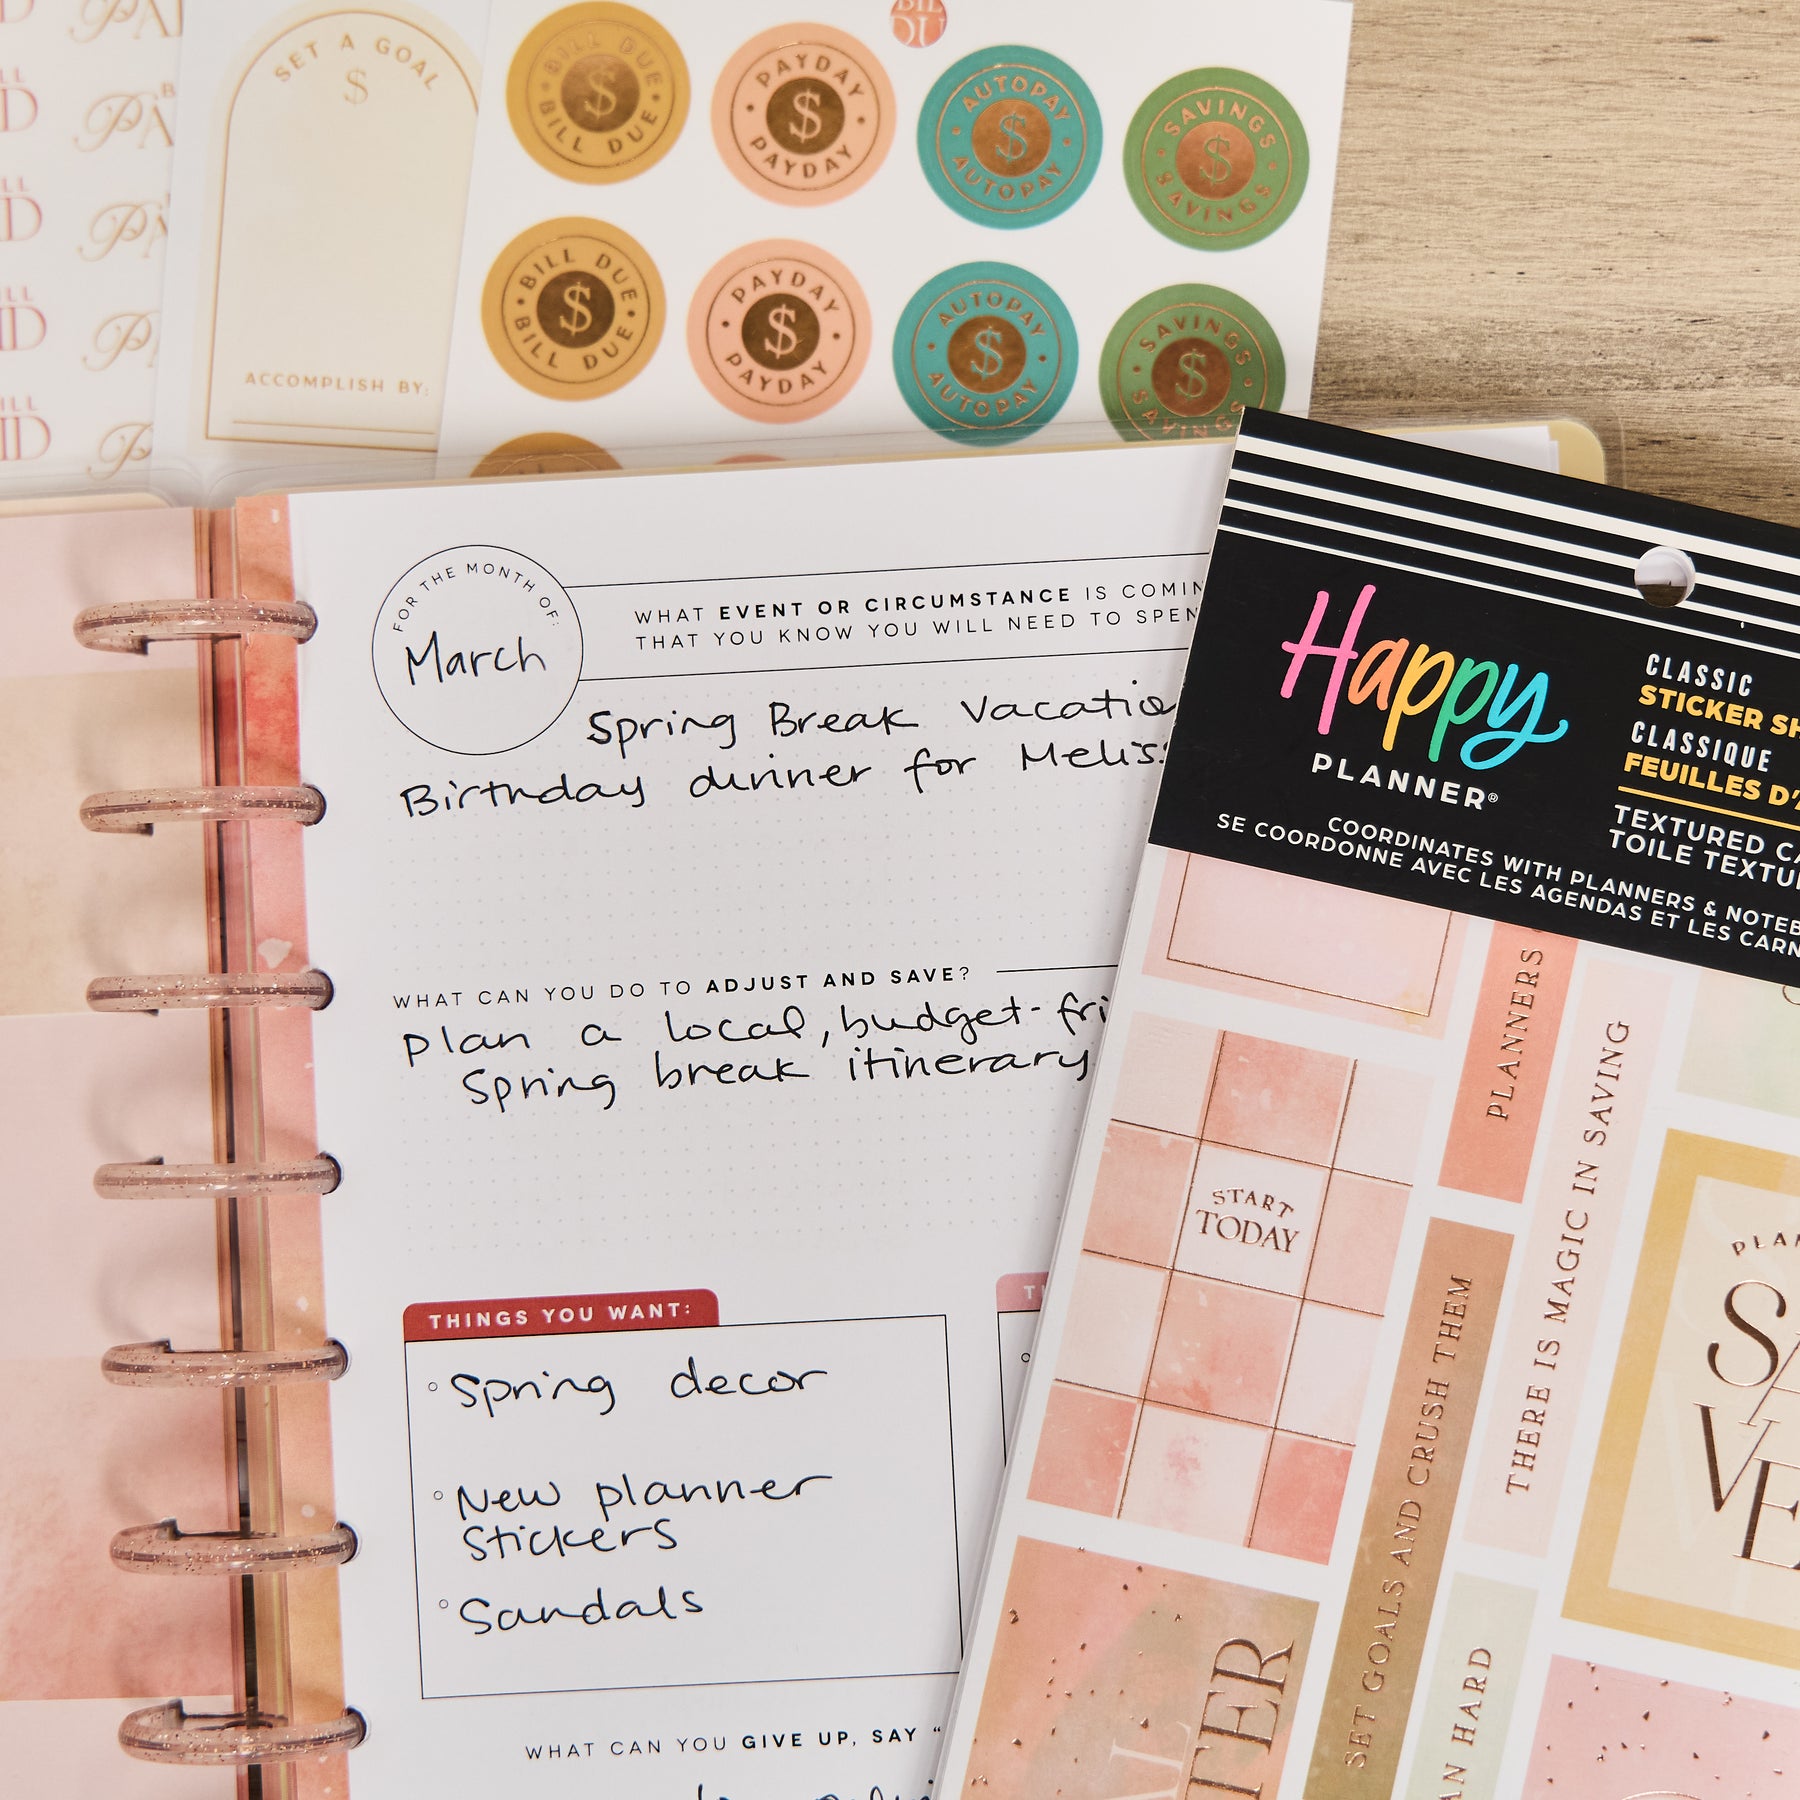 SET A GOAL
$
ACCOMPLISH BY:
BILL DUE
$
BILL DUE
PAYDAY
$
PAYDAY
AUTOPAY
$
AUTOPAY
SAVINGS
$
SAVINGS
BILL DUE
$
BILL DUE
PAYDAY
$
PAYDAY
AUTOPAY
$
AUTOPAY
SAVINGS
$
SAVINGS
FOR THE MONTH OF:
March
WHAT EVENT OR CIRCUMSTANCE IS
THAT YOU KNOW YOU WILL NEED TO
Spring Break
Birthday dinner for
WHAT CAN YOU DO TO ADJUST AND SAVE?
plan a local, budget-
Spring break itinerary
THINGS YOU WANT:
Spring decor
New planner
Stickers
Sandals
WHAT CAN YOU GIVE UP, SAY "
Happy
PLANNER®
CLASSIC
STICKER
CLASSIQUE
FEUILLES
TEXTURED
TOILE
COORDINATES WITH PLANNERS &
SE COORDONNE AVEC LES AGENDAS ET LES
PLANNERS
THERE IS MAGIC IN SAVING
START
TODAY
SET GOALS AND CRUSH THEM
HARD